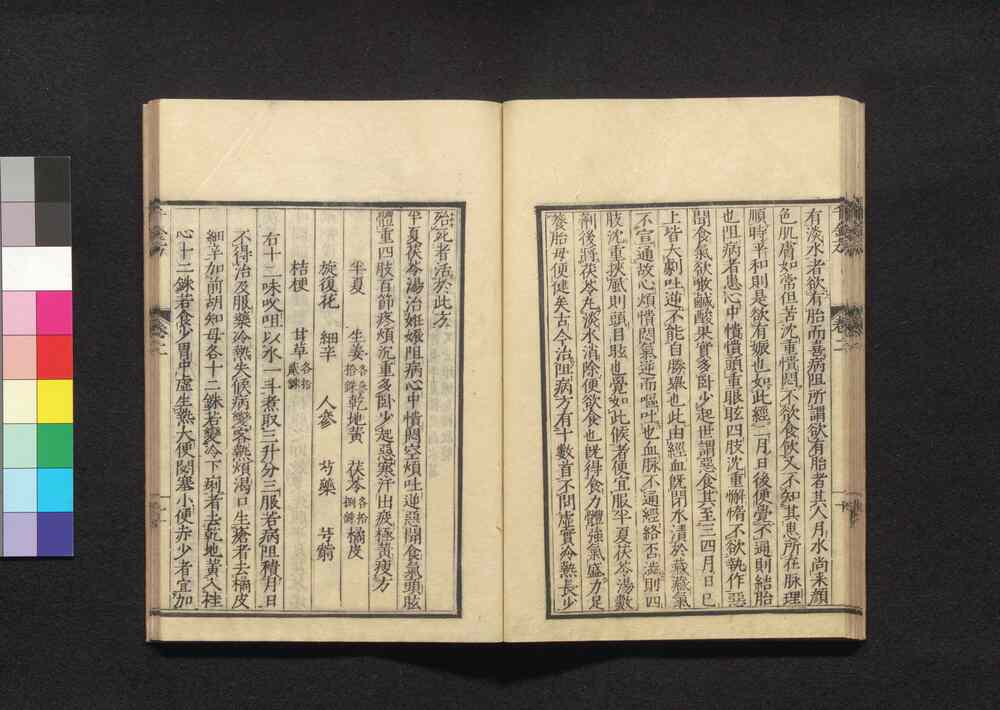 有淡水者欲有胎而喜病阻所謂欲有胎者其人月水尚來顏
色肌膚如常但苦沈重憒悶不欲食飲又不知其患所在脉理
順時平和則是欲有娠也如此經二月日後便覺不通則結胎
也阻病者患心中憒憒頭重眼眩四肢沈重懈惰不欲執作惡
聞食氣欲噉鹹酸果實多臥少起世謂惡食其至三四月日已
上皆大劇吐逆不能自勝舉也此由經血既閉水漬於藏藏氣
不宣通故心煩憒悶氣逆而嘔吐也血脉不通經絡否澁則四
肢沈重挾風則頭目眩也覺如此候者便宜服半夏茯苓湯數
劑後將茯苓丸淡水消除便欲食也既得食力體強氣盛力足
養胎母便健矣古今治阻病方有十數首不問虛實冷熱長少
殆死者活於此方
半夏茯苓湯治妊娠阻病心中憒悶空煩吐逆惡聞食氣頭眩
體重四肢百節疼煩沉重多臥少起惡寒汗出疲極黃瘦方
半夏 生姜各叁拾銖乾地黃 茯苓各拾捌銖橘皮
旋復花 細辛 人參 芍藥 芎藭
桔梗 甘草各拾貳銖
右十二味㕮咀以水一斗煮取三升分三服若病阻積月日
不得治及服藥冷熱失候病變客熱煩渴口生瘡者去橘皮
細辛加前胡知母各十二銖若變冷下痢者去乾地黃入桂
心十二銖若食少胃中虛生熱大便閉塞小便赤少者宜加